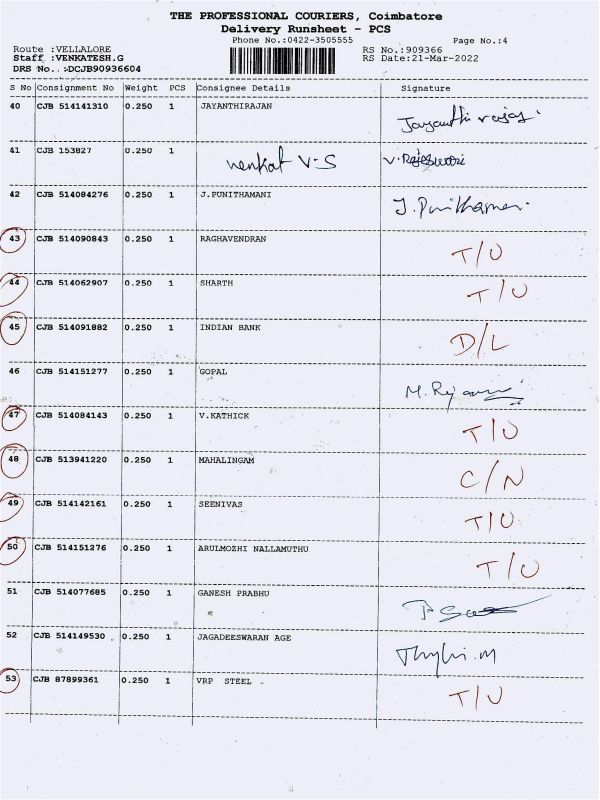 THE PROFESSIONAL COURIERS, Coimbatore
Delivery Runsheet - PCS
Phone No.:0422-3505555 Page No.:4
Route :VELLALORE RS No.:909366
Staff :VENKATESH.G RS Date:21-Mar-2022
DRS No..:DCJB90936604
S No Consignment No Weight PCS Consignee Details Signature
40 CJB 514141310 0.250 1 JAYANTHIRAJAN
41 CJB 153827 0.250 1 Venkat V-S V. Rajeswari
42 CJB 514084276 0.250 1 J.PUNITHAMANI J. Punithamani
43 CJB 514090843 0.250 1 RAGHAVENDRAN T/U
44 CJB 514062907 0.250 1 SHARTH T/U
45 CJB 514091882 0.250 1 INDIAN BANK D/L
46 CJB 514151277 0.250 1 GOPAL
47 CJB 514084143 0.250 1 V.KATHICK T/U
48 CJB 513941220 0.250 1 MAHALINGAM C/N
49 CJB 514142161 0.250 1 SEENIVAS T/U
50 CJB 514151276 0.250 1 ARULMOZHI NALLAMUTHU T/U
51 CJB 514077685 0.250 1 GANESH PRABHU
52 CJB 514149530 0.250 1 JAGADEESWARAN AGE
53 CJB 87899361 0.250 1 VRP STEEL T/U